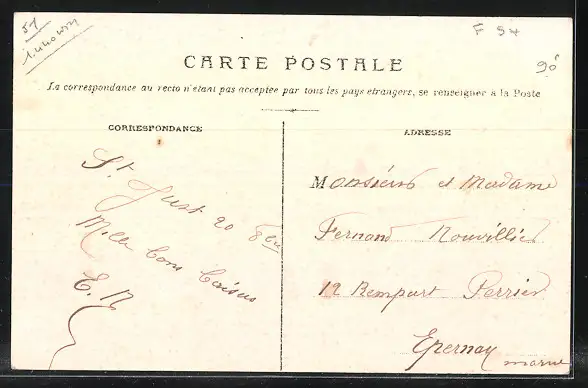 51
E 54
90
CARTE POSTALE
La correspondance au recto n'étant pas acceptée par tous les pays étrangers, se renseigner à la Poste
CORRESPONDANCE
ADRESSE
St Just 20 8bre
Mille bons baisers
E. R
Monsieur et Madame
Fernand Rouvillier
12 Rempart Perrier
Epernay
marne